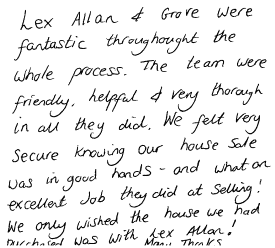 Lex Allan & Grove were
fantastic throughought the
whole process. The team were
friendly, helpful & very thorough
in all they did. We felt very
secure knowing our house sale
was in good hands - and what an
excellent job they did at selling!
We only wished the house we had
purchased was with Lex Allan!
Many Thanks